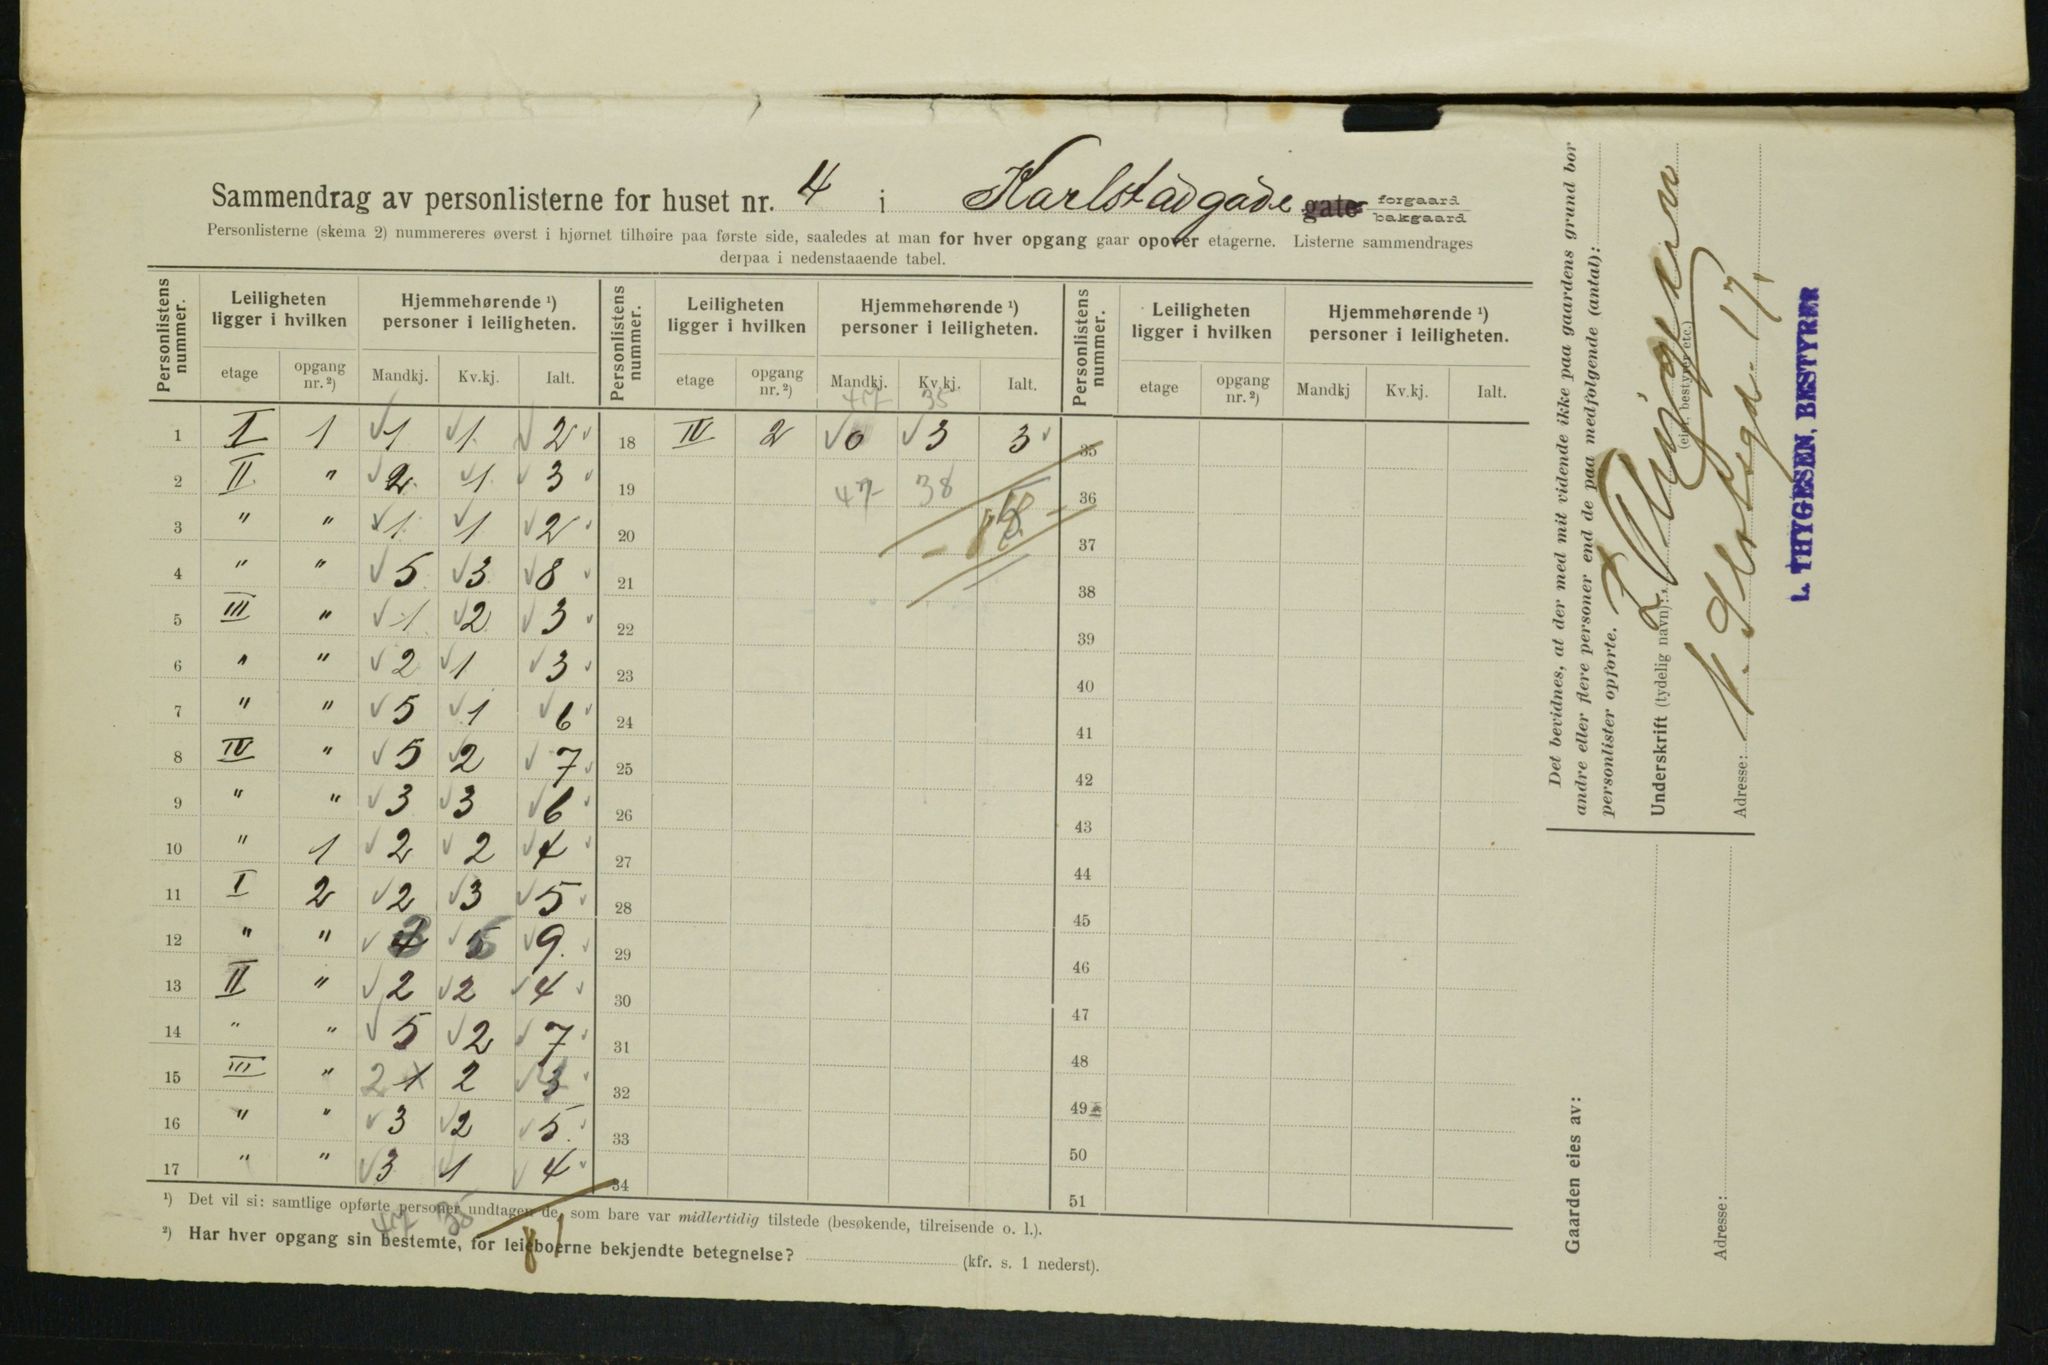 Sammendrag av personlisterne for huset nr. 4 i Karlstadgade gate forgaard bakgaard
Personlisterne (skema 2) nummereres øverst i hjørnet tilhøire paa første side, saaledes at man for hver opgang gaar opover etagerne. Listerne sammendrages
derpaa i nedenstaaende tabel.
Personlistens nummer. Leiligheten ligger i hvilken Hjemmehørende ¹) personer i leiligheten. Personlistens nummer. Leiligheten ligger i hvilken Hjemmehørende ¹) personer i leiligheten. Personlistens nummer. Leiligheten ligger i hvilken Hjemmehørende ¹) personer i leiligheten.
etage opgang nr. ²) Mandkj. Kv.kj. Ialt. etage opgang nr. ²) Mandkj. Kv.kj. Ialt. etage opgang nr. ²) Mandkj Kv.kj. Ialt.
47 35
1 I 1 1 1 2 18 IV 2 0 3 3 35
2 II " 2 1 3 19 47 38 36
3 " " 1 1 2 20 37
4 " " 5 3 8 21 38
5 III " 1 2 3 22 39
6 " " 2 1 3 23 40
7 " " 5 1 6 24 41
8 IV " 5 2 7 25 42
9 " " 3 3 6 26 43
10 " 1 2 2 4 27 44
11 I 2 2 3 5 28 45
12 " " 9 29 46
13 II " 2 2 4 30 47
14 " " 5 2 7 31 48
15 III " 2 1 2 3 32 49
16 " " 3 2 5 33 50
17 " " 3 1 4 34 51
¹) Det vil si: samtlige opførte personer undtagen de, som bare var midlertidig tilstede (besøkende, tilreisende o. l.).
47 35 81
²) Har hver opgang sin bestemte, for leieboerne bekjendte betegnelse? (kfr. s. 1 nederst).
Det bevidnes, at der med mit vidende ikke paa gaardens grund bor
andre eller flere personer end de paa medfølgende (antal):
personlister opførte.
Underskrift (tydelig navn): L. Thygesen
(eier, bestyrer etc.)
Adresse: N. Slotsgd. 17,
L. THYGESEN, BESTYRER
Gaarden eies av:
Adresse: